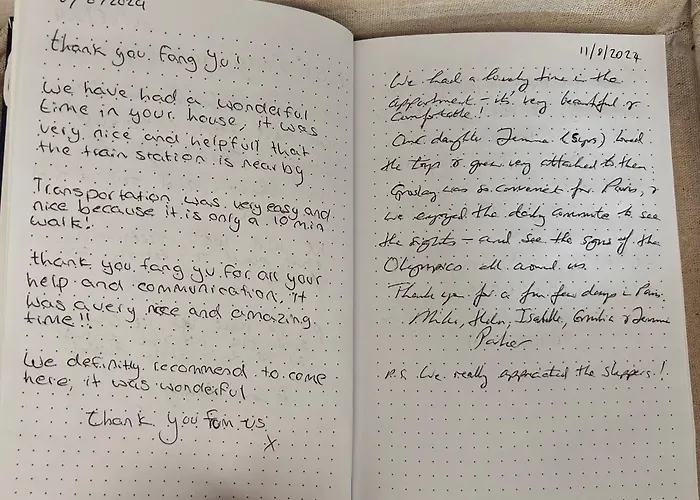 8/2024
thank you fang yu!
we have had a wonderful
time in your house, it was
very nice and helpfull that
the train station is nearby
Transportation was very easy and
nice because it is only a 10 min
walk!
thank you fang yu for all your
help and communication. it
was a very nice and amazing
time!!
We definitly recommend to come
here, it was wonderful
thank you from us
x
11/8/2024
We had a lovely time in the
appartment - it's very beautiful &
comfortable!
Our daughter Jemma (5yrs) loved
the toys & grew very attached to them.
Groslay was so convenient for Paris, &
we enjoyed the daily commute to see
the sights - and see the signs of the
Olympics all around us.
Thank you for a fun few days in Paris.
Mike, Helen, Isabelle, & Jemma
P.S. We really appreciated the slippers!